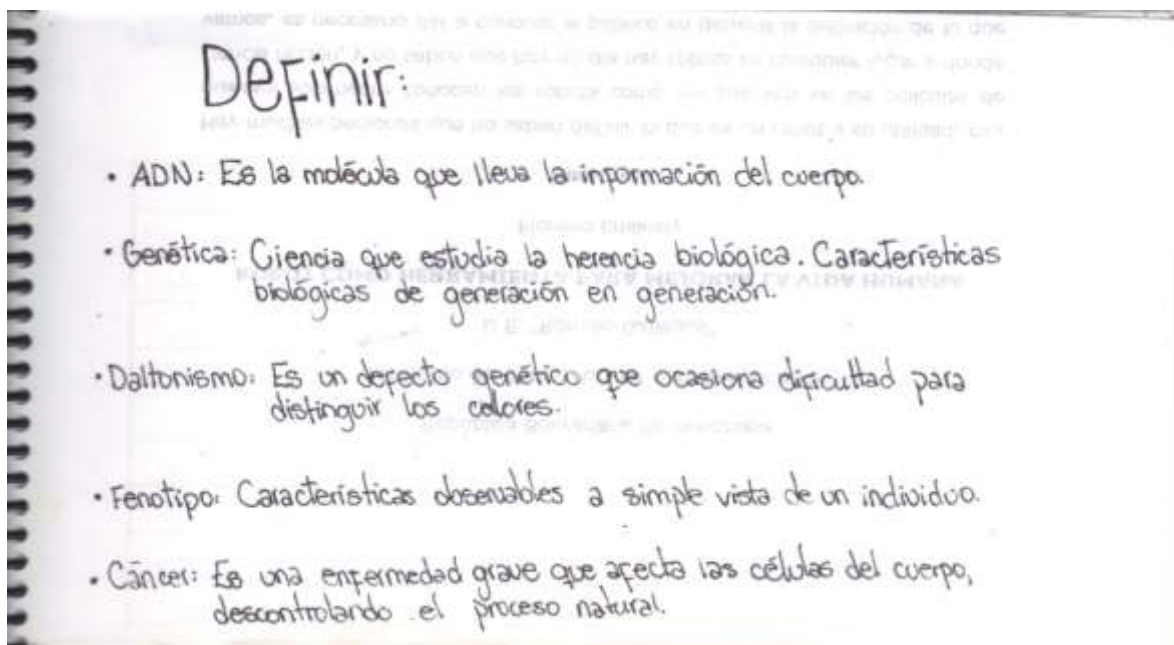 Definir:
• ADN: Es la molécula que lleva la información del cuerpo.
• Genética: Ciencia que estudia la herencia biológica. Características
biológicas de generación en generación.
• Daltonismo: Es un defecto genético que ocasiona dificultad para
distinguir los colores.
• Fenotipo: Características observables a simple vista de un individuo.
• Cáncer: Es una enfermedad grave que afecta las células del cuerpo,
descontrolando el proceso natural.